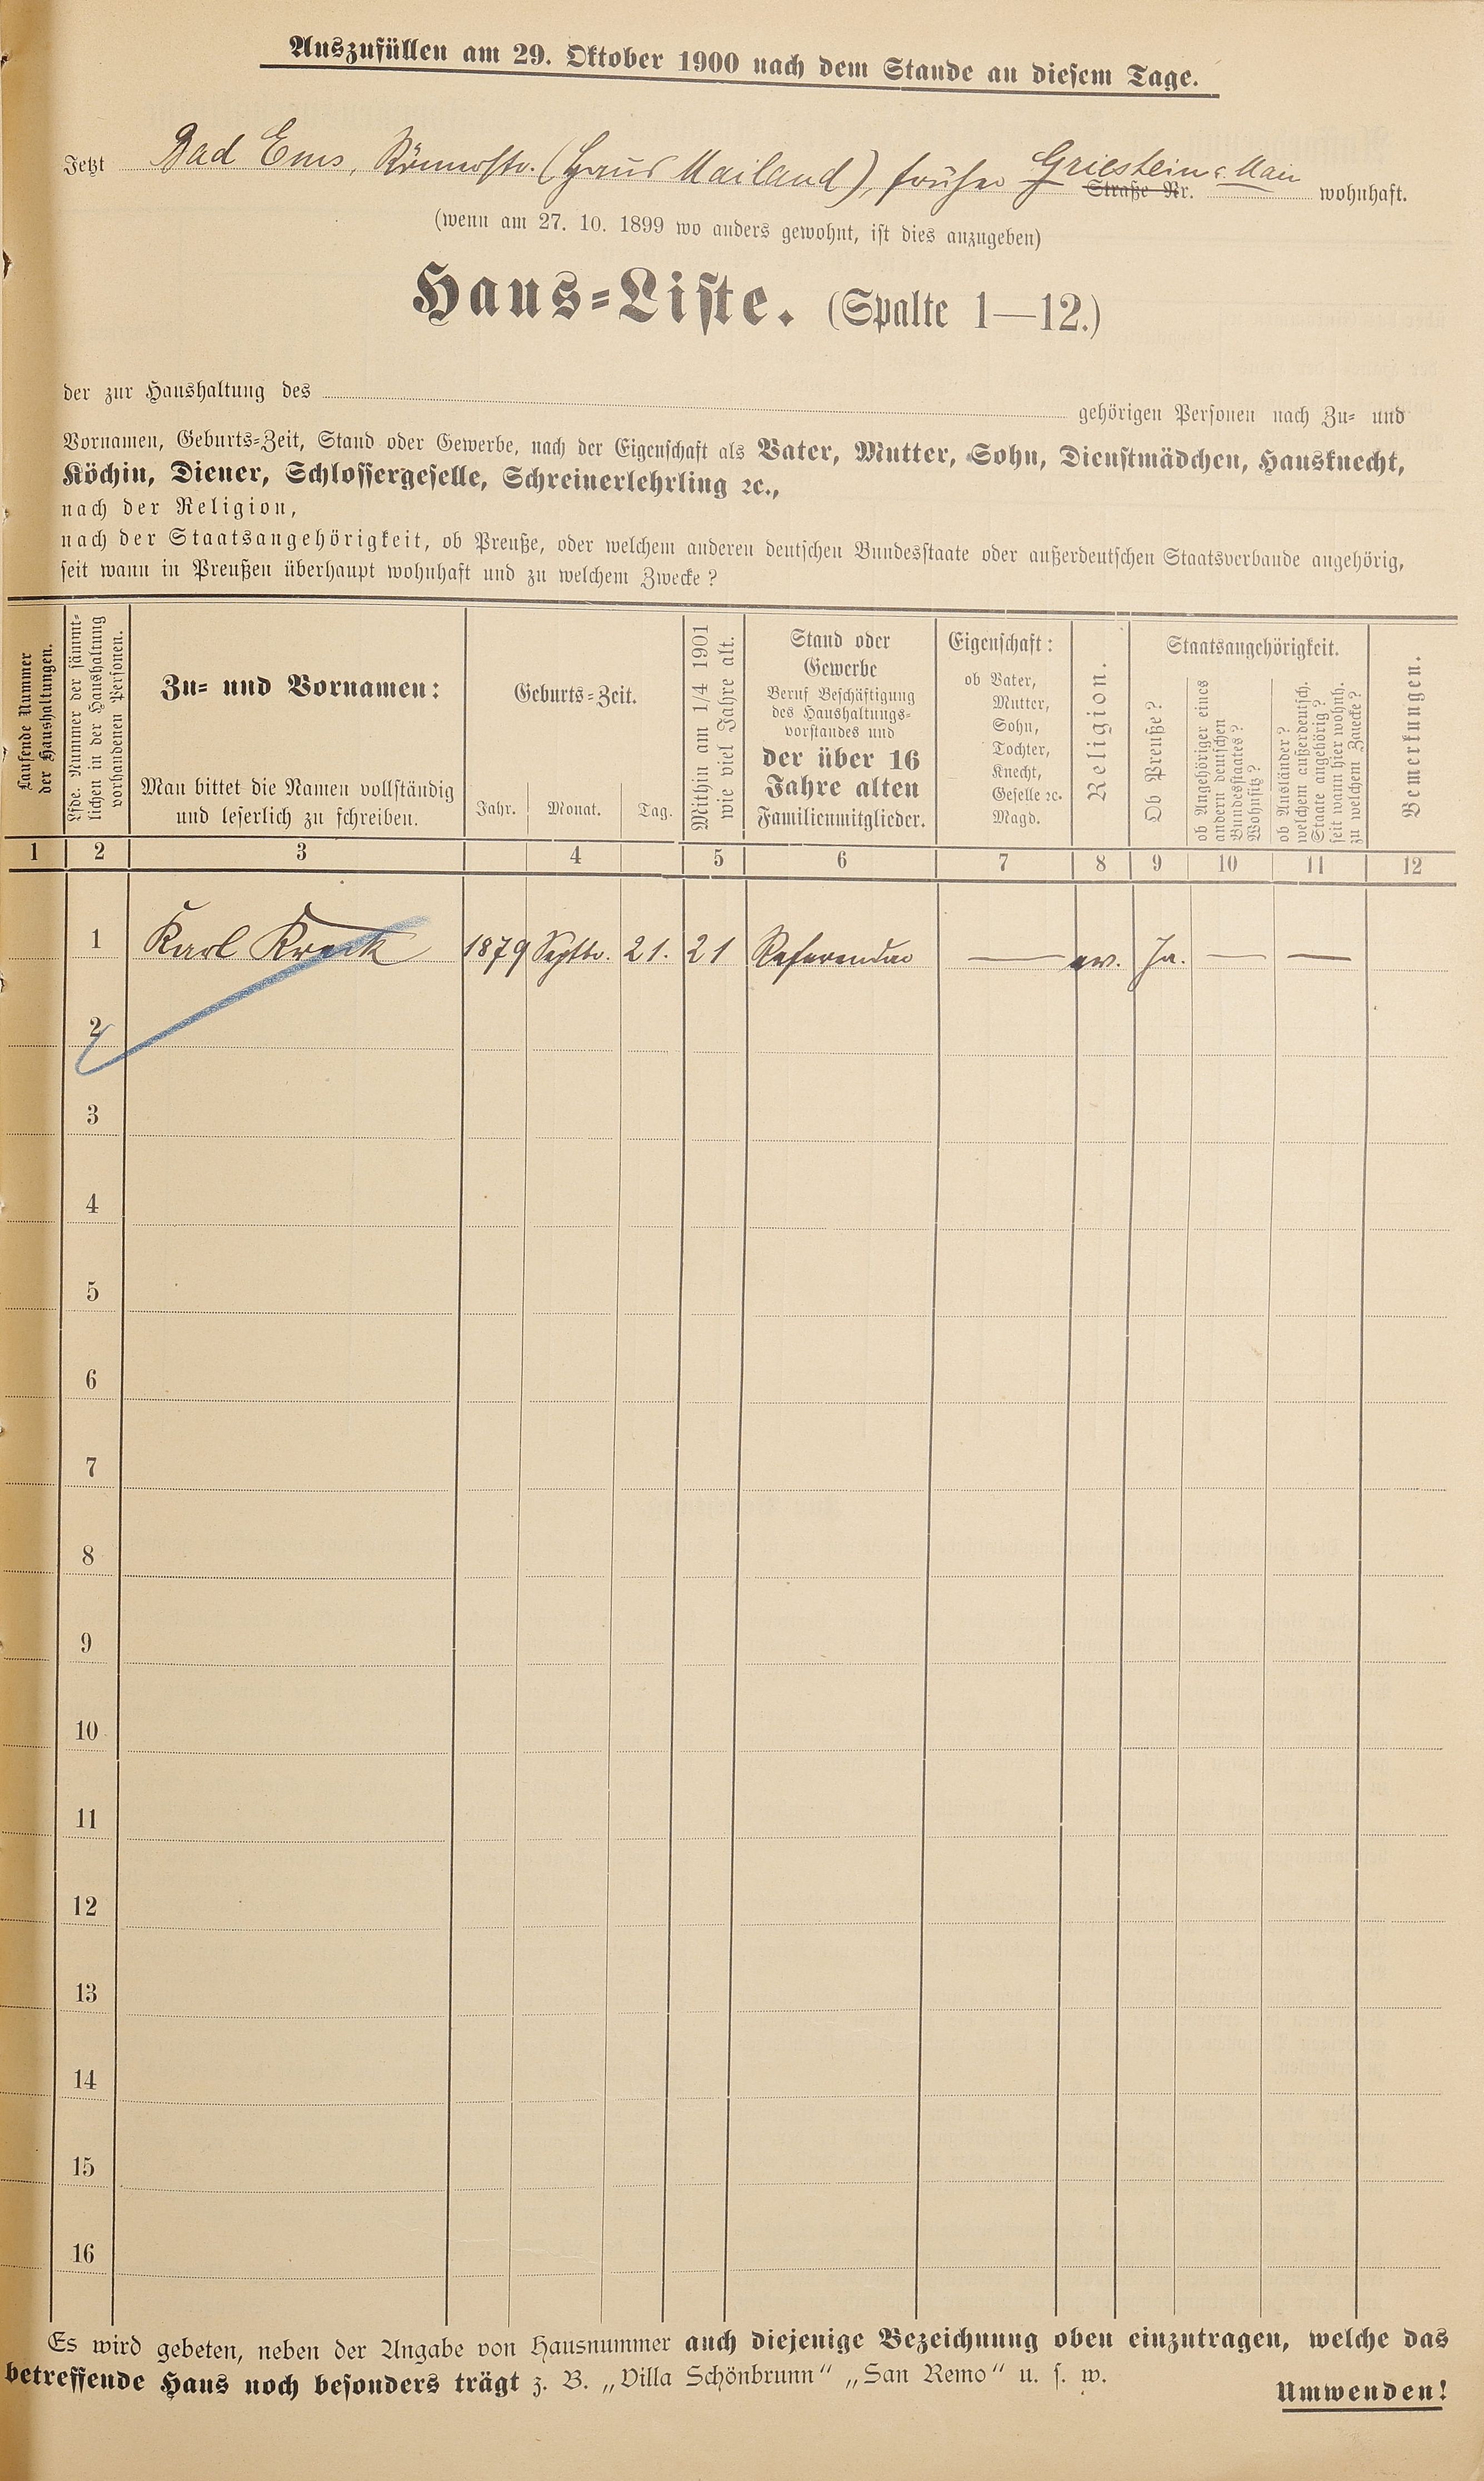 Auszufüllen am 29. Oktober 1900 nach dem Stande an diesem Tage.
Jetzt Bad Ems, Römerstr. (Haus Mailand), früher Griesheim a. Main Straße Nr. wohnhaft.
(wenn am 27. 10. 1899 wo anders gewohnt, ist dies anzugeben)
Haus-Liste. (Spalte 1—12.)
der zur Haushaltung des gehörigen Personen nach Zu- und
Vornamen, Geburts-Zeit, Stand oder Gewerbe, nach der Eigenschaft als Vater, Mutter, Sohn, Dienstmädchen, Hausknecht,
Köchin, Diener, Schlossergeselle, Schreinerlehrling ꝛc.,
nach der Religion,
nach der Staatsangehörigkeit, ob Preuße, oder welchem anderen deutschen Bundesstaate oder außerdeutschen Staatsverbande angehörig,
seit wann in Preußen überhaupt wohnhaft und zu welchem Zwecke?
Laufende Nummer
der Haushaltungen.
Lfde. Nummer der sämmt-
lichen in der Haushaltung
vorhandenen Personen.
Zu- und Vornamen:
Man bittet die Namen vollständig
und leserlich zu schreiben.
Geburts-Zeit.
Jahr. Monat. Tag.
Mithin am 1/4 1901
wie viel Jahre alt.
Stand oder
Gewerbe
Beruf Beschäftigung
des Haushaltungs-
vorstandes und
der über 16
Jahre alten
Familienmitglieder.
Eigenschaft:
ob Vater,
Mutter,
Sohn,
Tochter,
Knecht,
Geselle ꝛc.
Magd.
Religion.
Staatsangehörigkeit.
Ob Preuße?
ob Angehöriger eines
andern deutschen
Bundesstaates?
Wohnsitz?
ob Ausländer?
welchem außerdeutsch.
Staate angehörig?
seit wann hier wohnh.
zu welchem Zwecke?
Bemerkungen.
1 2 3 4 5 6 7 8 9 10 11 12
1 Karl 1879 Septbr. 21. 21 Referendar — ev. Ja. — —
2
3
4
5
6
7
8
9
10
11
12
13
14
15
16
Es wird gebeten, neben der Angabe von Hausnummer auch diejenige Bezeichnung oben einzutragen, welche das
betreffende Haus noch besonders trägt z. B. „Villa Schönbrunn“ „San Remo“ u. s. w.
Umwenden!